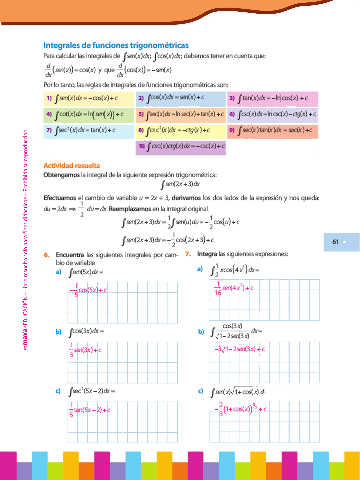 Integrales de funciones trigonométricas
Para calcular las integrales de ∫sen(x)dx, ∫cos(x)dx; debemos tener en cuenta que:
d/dx (sen(x)) = cos(x) y que d/dx (cos(x)) = −sen(x)
Por lo tanto, las reglas de integrales de funciones trigonométricas son:
1) ∫sen(x)dx = −cos(x)+c 2) ∫cos(x)dx = sen(x)+c 3) ∫tan(x)dx = −ln|cos(x)|+c
4) ∫cot(x)dx = ln|sen(x)|+c 5) ∫sec(x)dx = ln|sec(x)+tan(x)|+c 6) ∫csc(x)dx = ln|csc(x)−ctg(x)|+c
7) ∫sec²(x)dx = tan(x)+c 8) ∫csc²(x)dx = −ctg(x)+c 9) ∫sec(x)tan(x)dx = sec(x)+c
10) ∫csc(x)ctg(x)dx = −csc(x)+c
Actividad resuelta
Obtengamos la integral de la siguiente expresión trigonométrica:
∫sen(2x+3)dx
Efectuamos el cambio de variable u = 2x + 3, derivamos los dos lados de la expresión y nos queda:
du = 2dx ⟹ 1/2 du = dx Reemplazamos en la integral original
∫sen(2x+3)dx = 1/2 ∫sen(u)du = −1/2 cos(u)+c
∫sen(2x+3)dx = −1/2 cos(2x+3)+c
61
6. Encuentra las siguientes integrales por cambio de variable
a) ∫sen(5x)dx =
−1/5 cos(5x)+c
b) ∫cos(3x)dx =
1/3 sen(3x)+c
c) ∫sec²(5x−2)dx =
1/5 sen(5x−2)+c
7. Integra las siguientes expresiones:
a) ∫1/2 xcos(4x²)dx =
1/16 sen(4x²)+c
b) ∫ cos(3x)/√1−2sen(3x) dx =
−3√1−2sen(3x)+c
c) ∫sen(x)√1+cos(x) d
−2/3 (1+cos(x))^3/2 + c